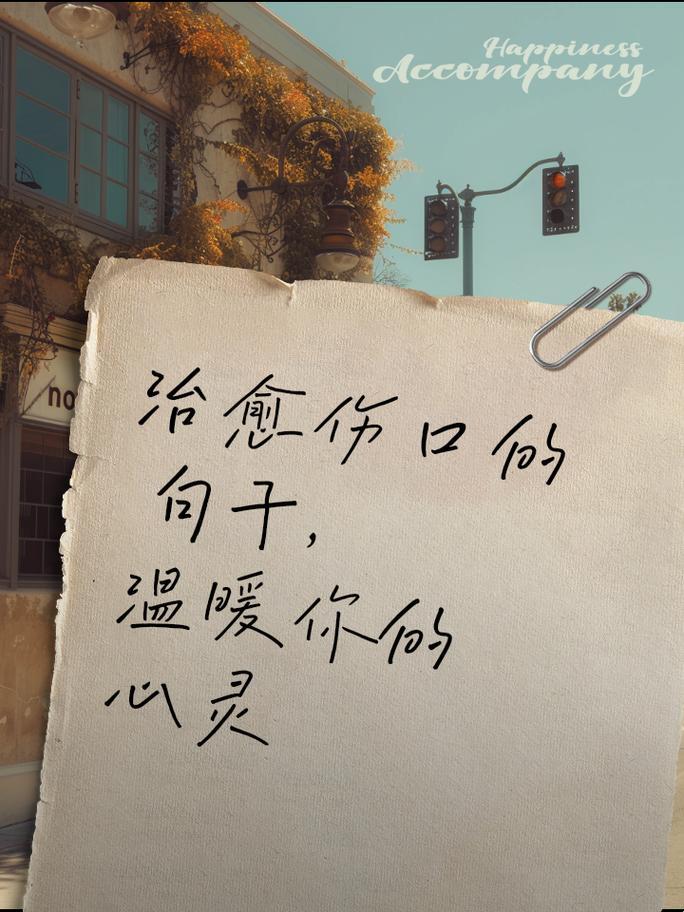 Happiness
Accompany
no
治愈伤口的
句子,
温暖你的
心灵